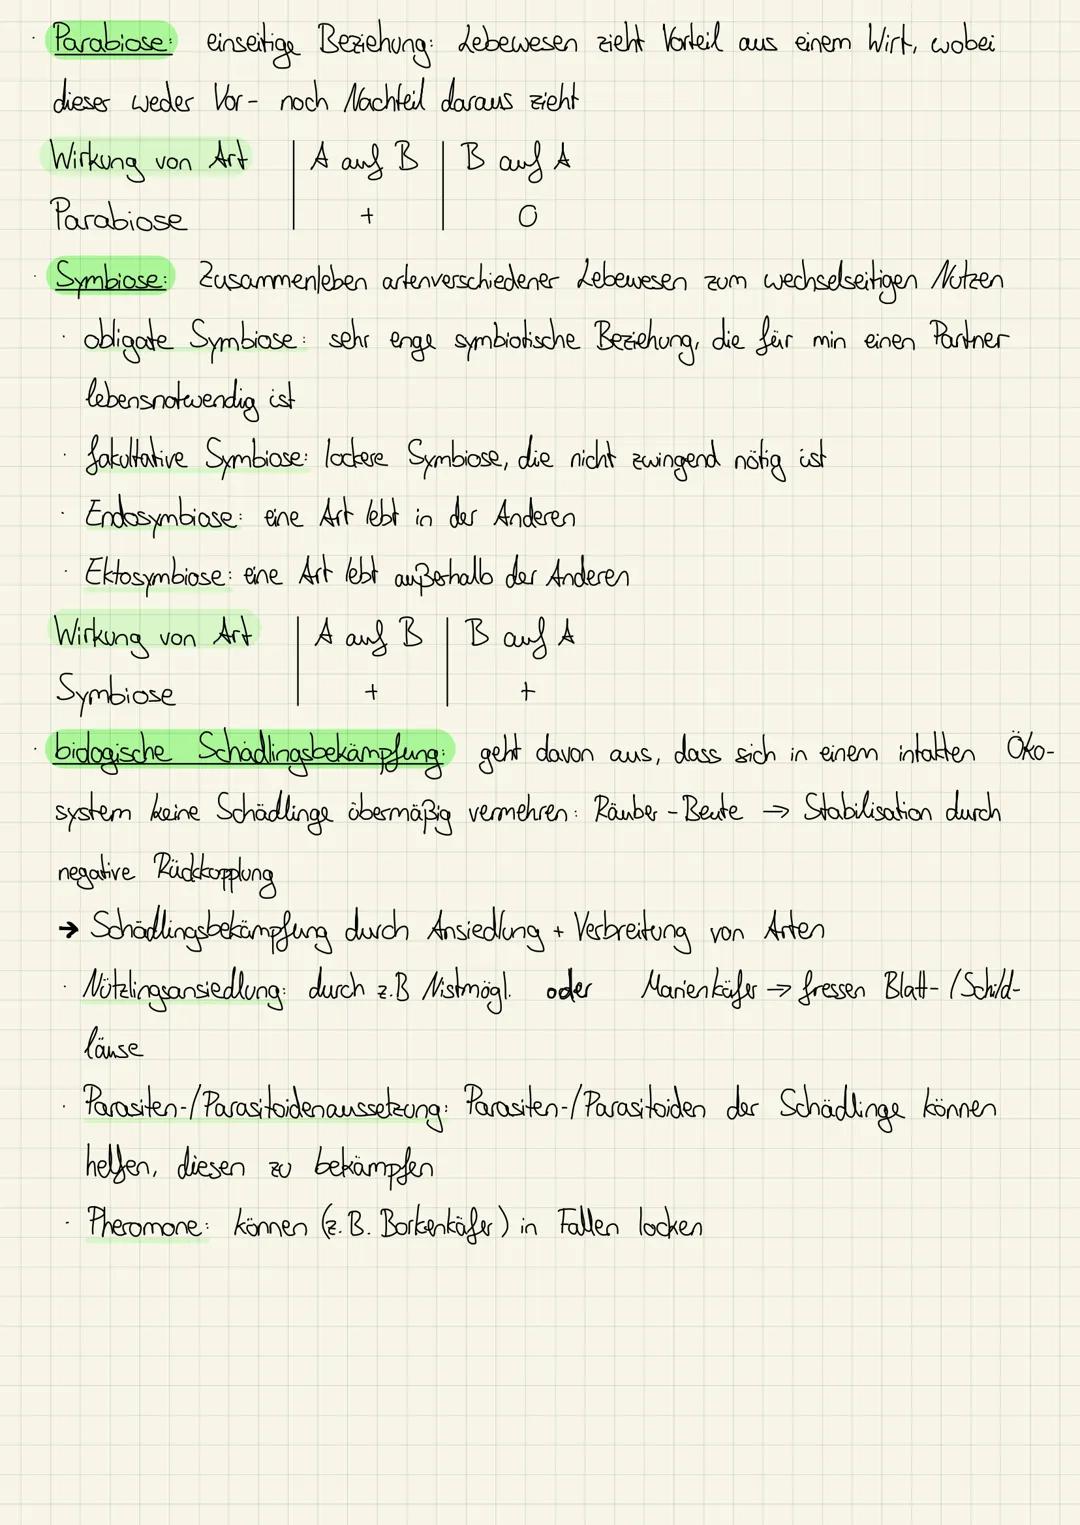 · Parabiose: einseitige Beziehung: Lebewesen zieht Vorteil aus einem Wirt, wobei
dieser weder Vor- noch Nachteil daraus zieht
Wirkung von Art | A auf B | B auf A
Parabiose | + | 0
· Symbiose: Zusammenleben artenverschiedener Lebewesen zum wechselseitigen Nutzen
· obligate Symbiose: sehr enge symbiotische Beziehung, die für min einen Partner
lebensnotwendig ist
· fakultative Symbiose: lockere Symbiose, die nicht zwingend nötig ist
· Endosymbiose: eine Art lebt in der Anderen
· Ektosymbiose: eine Art lebt außerhalb der Anderen
Wirkung von Art | A auf B | B auf A
Symbiose | + | +
· biologische Schädlingsbekämpfung: geht davon aus, dass sich in einem intakten Öko-
system keine Schädlinge übermäßig vermehren: Räuber - Beute → Stabilisation durch
negative Rückkopplung
→ Schädlingsbekämpfung durch Ansiedlung + Verbreitung von Arten
· Nützlingsansiedlung: durch z.B Nistmögl. oder Marienkäfer → fressen Blatt- / Schild-
läuse
· Parasiten-/Parasitoidenaussetzung: Parasiten-/Parasitoiden der Schädlinge können
helfen, diesen zu bekämpfen
· Pheromone: können (z.B. Borkenkäfer) in Fallen locken